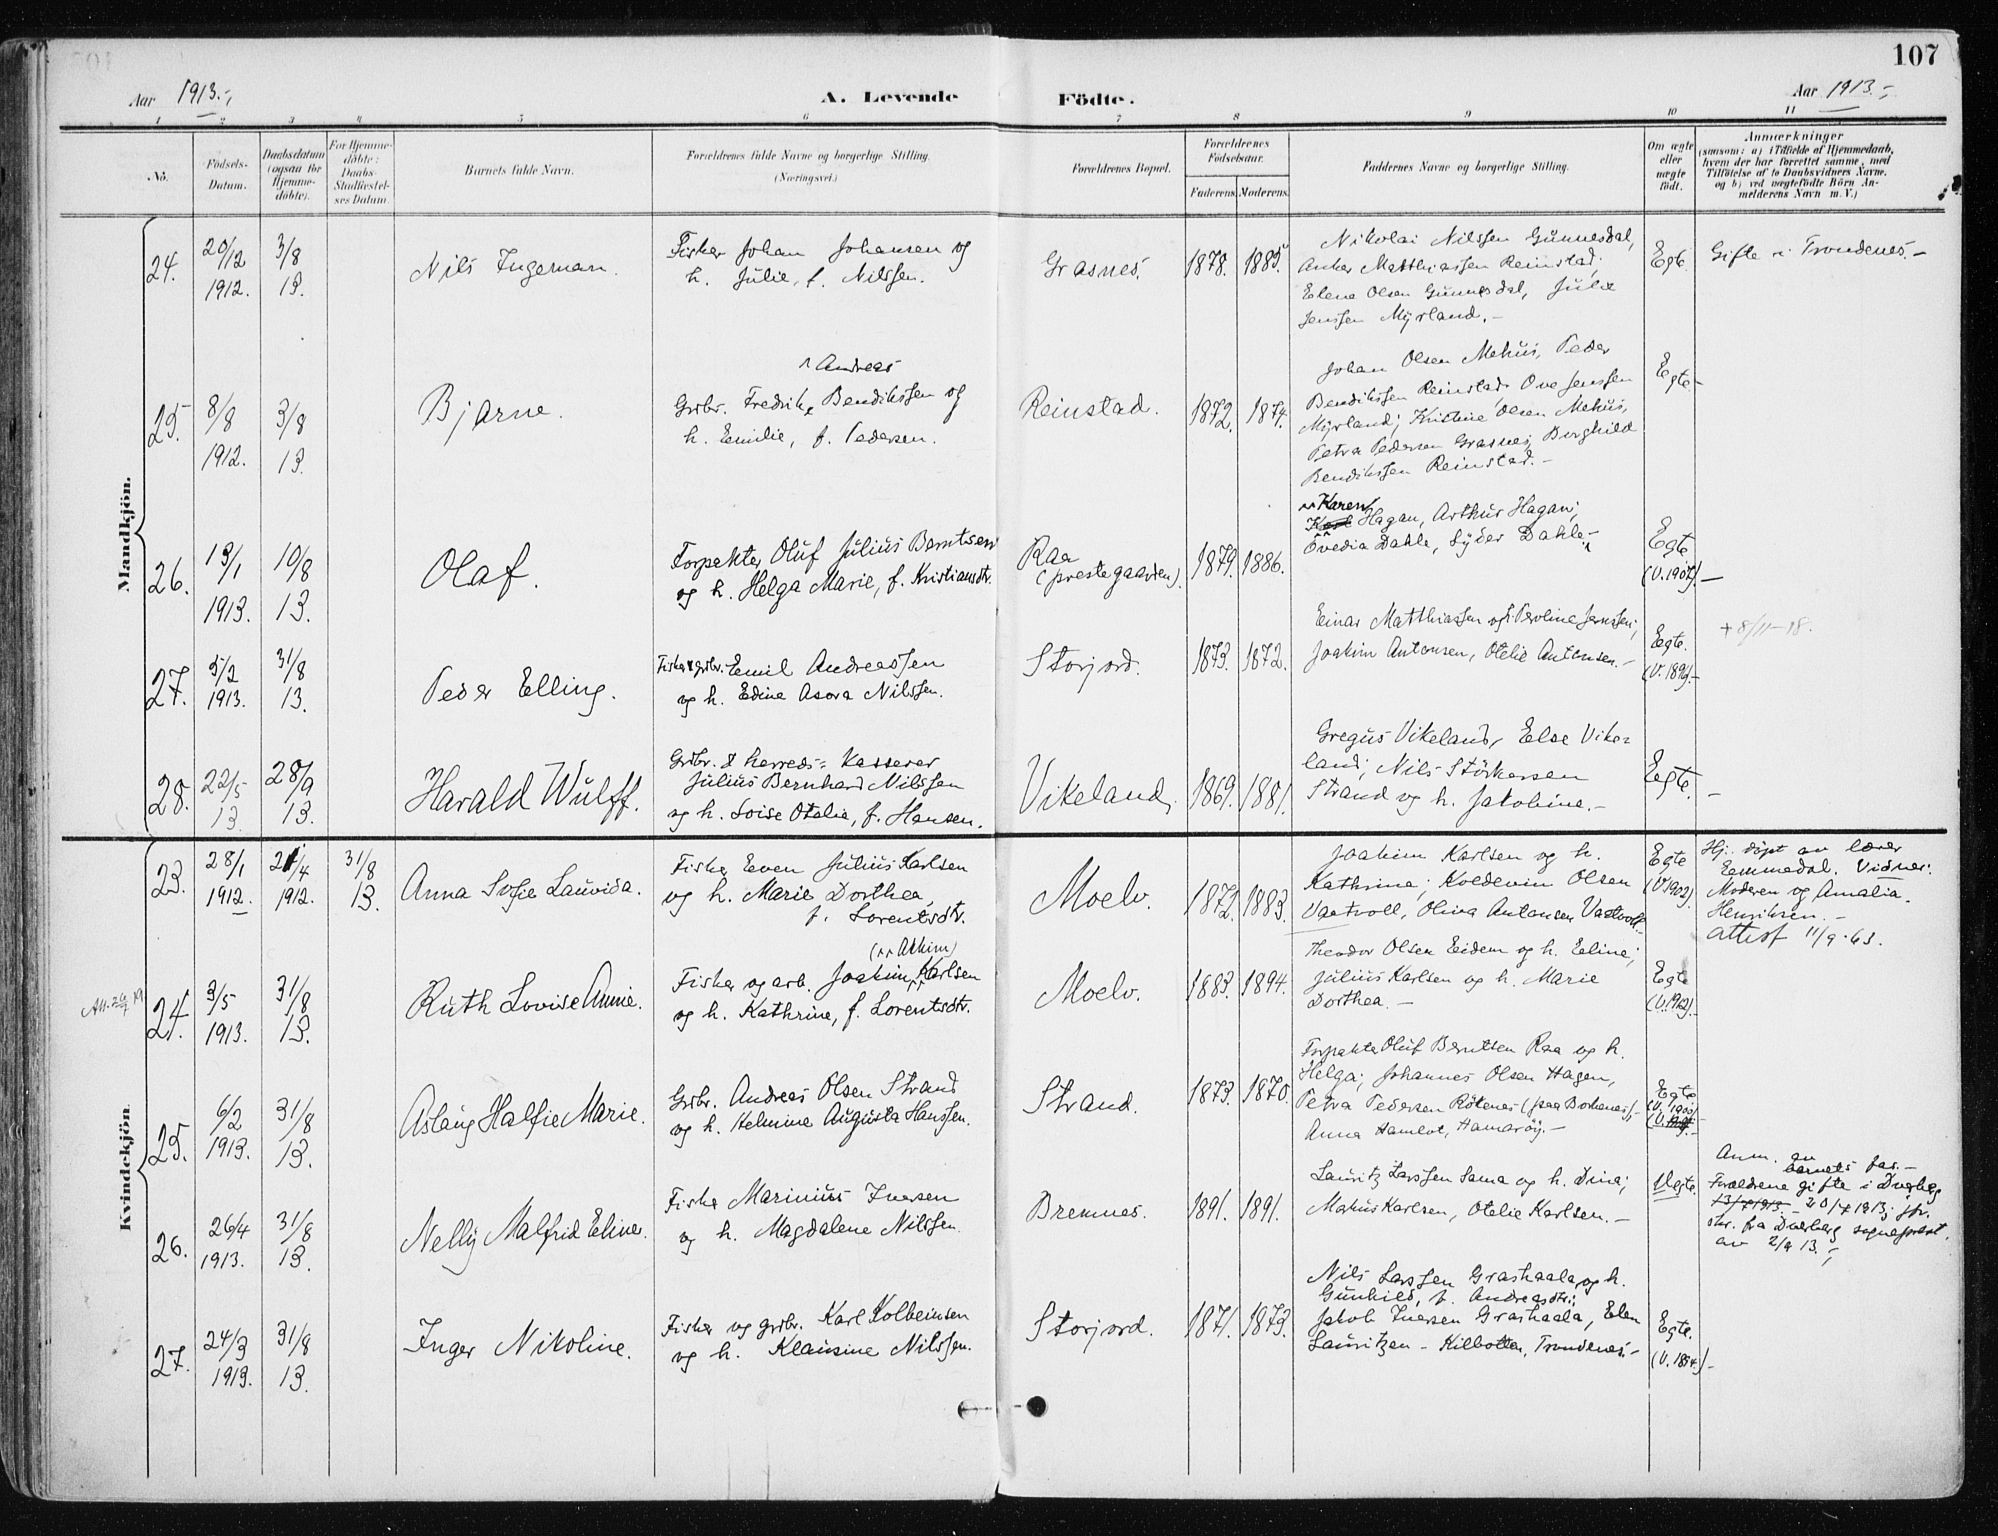 107
Aar 1913.-,
A. Levende Födte.
Aar 1913.-,
1 2 3 4 5 6 7 8 9 10 11
No.
Födsels-
Datum.
Daabsdatum
(ogsaa for
Hjemme-
döbte).
For Hjemme-
döbte:
Daabs-
Stadfæstel-
ses Datum.
Barnets fulde Navn.
Forældrenes fulde Navne og borgerlige Stilling.
(Næringsvei.)
Forældrenes Bopæl.
Forældrenes
Födselsaar.
Faderens. Moderens.
Faddernes Navne og borgerlige Stilling.
Om ægte
eller
uægte
födt.
Anmærkninger
(saasom: a) i Tilfælde af Hjemmedaab,
hvem der har forrettet samme, med
Tilföielse af to Daabsvidners Navne.
og b) ved uægtefödte Börn An-
melderens Navn m. V.)
Mandkjön.
24.
20/12
1912.
3/8
13.
Nils Ingeman.
Fisker Johan Johansen og
h. Julie, f. Nilssen.
Grasnes.
1878. 1885.
Nikolai Nilssen Gunnesdal,
Anker Matthiassen Reinstad;
Elene Olsen Gunnesdal, Julie
Jenssen Myrland.-
Egte.
Gifte i Trondenes.-
25.
8/8
1912.
3/8
13.
Bjarne.
Andreas
Grbr. Fredrik Bendikssen og
h. Emilie, f. Pedersen.
Reinstad.
1872. 1874.
Johan Olsen Mehus, Peder
Bendikssen Reinstad, Ove Jenssen
Myrland; Kristine Olsen Mehus,
Petra Pedersen Grasnes, Borghild
Bendikssen Reinstad.-
Egte-
26.
13/1
1913.
10/8
13.
Olaf.
Forpakter Oluf Julius Berntsen
og h. Helga Marie, f. Kristiansdtr.
Raa
(prestegaarden).
1879. 1886.
Karen
Hagan, Arthur Hagan;
Ovedia Dahle, Syver Dahle-
Egte
(V. 1907)-
27.
5/2
1913.
31/8
13.
Peder Elling.
Fisker & grbr. Emil Andreassen
og h. Edine Asora Nilssen.
Storjord.
1873. 1872.
Einar Matthiassen og Peroline Jenssen;
Joakim Antonsen, Otelie Antonsen.-
Egte.
(V. 1892).-
+ 8/11-18.
28.
22/5
13
28/9
13.
Harald Wulff.
Grbr. & herreds-kasserer
Julius Bernhard Nilssen
og h. Loise Otelie, f. Hansen.
Vikeland.
1869. 1881.
Gregus Vikeland, Else Vike-
land; Nils Störkersen
Strand og h. Jakobine.-
Egte.-
Kvindekjön.
23.
28/1
1912.
21/4
1912.
31/8
13.
Anna Sofie Lauvida.
Fisker Even Julius Karlsen
og h. Marie Dorthea,
f. Lorentsdtr.
Moelv.
1872. 1883.
Joakim Karlsen og h.
Kathrine; Koldevin Olsen
Vastvoll, Oliva Antonsen Vastvoll.-
Egte
(V. 1902).
Hj. döpt av lærer
Eemmedal. Vidner:
Moderen og Amalia
Henriksen.-
attest 11/9-63.
24.
3/5
1913.
31/8
13.
Ruth Lovise Annie.
(Athim)
Fisker og arb. Joakim Karlsen
og h. Kathrine, f. Lorentsdtr.
Moelv.
1883. 1894.
Theodor Olsen Eidem og h. Eeline;
Julius Karlsen og h. Marie
Dorthea.-
Egte
(V. 1912).-
25.
6/2
1913.
31/8
13.
Aslaug Halfie Marie.
Grbr. Andreas Olsen Strand
og h. Helmine Augusta Hanssen.
Strand.
1873. 1870.
Forpakter Oluf Berntsen Raa og h.
Helga; Johannes Olsen Hagen,
Petra Pedersen Rökenes (paa Borkenes),
Anna Hamlot, Hamaröy.-
Egte
(V. 1900)
26.
26/4
1913.
31/8
13.
Nelly Malfrid Eline.
Fisker Marinius Iversen
og h. Magdalene Nilssen.
Bremnes.
1891. 1891.
Lauritz Larssen Sama og h. Dina;
Makus Karlsen, Otelie Karlsen.-
Uegte.
Anm. av
barnets far.-
Forældrene gifte i Dverberg
20/7 1913; jfr.
skr. fra Dverberg sogneprest
av 2/9 13.-,
27.
24/3
1913.
31/8
13.
Inger Nikoline.
Fisker og grbr. Karl Kolbeinsen
og h. Klausine Nilssen.
Storjord.
1871. 1873.
Nils Larssen Grashaala og h.
Gunhild, f. Andreasdtr.;
Jakob Iversen Grashaala, Elen
Lauritzen - Kilbotten, Trondenes.-
Egte.
(V. 1894)-